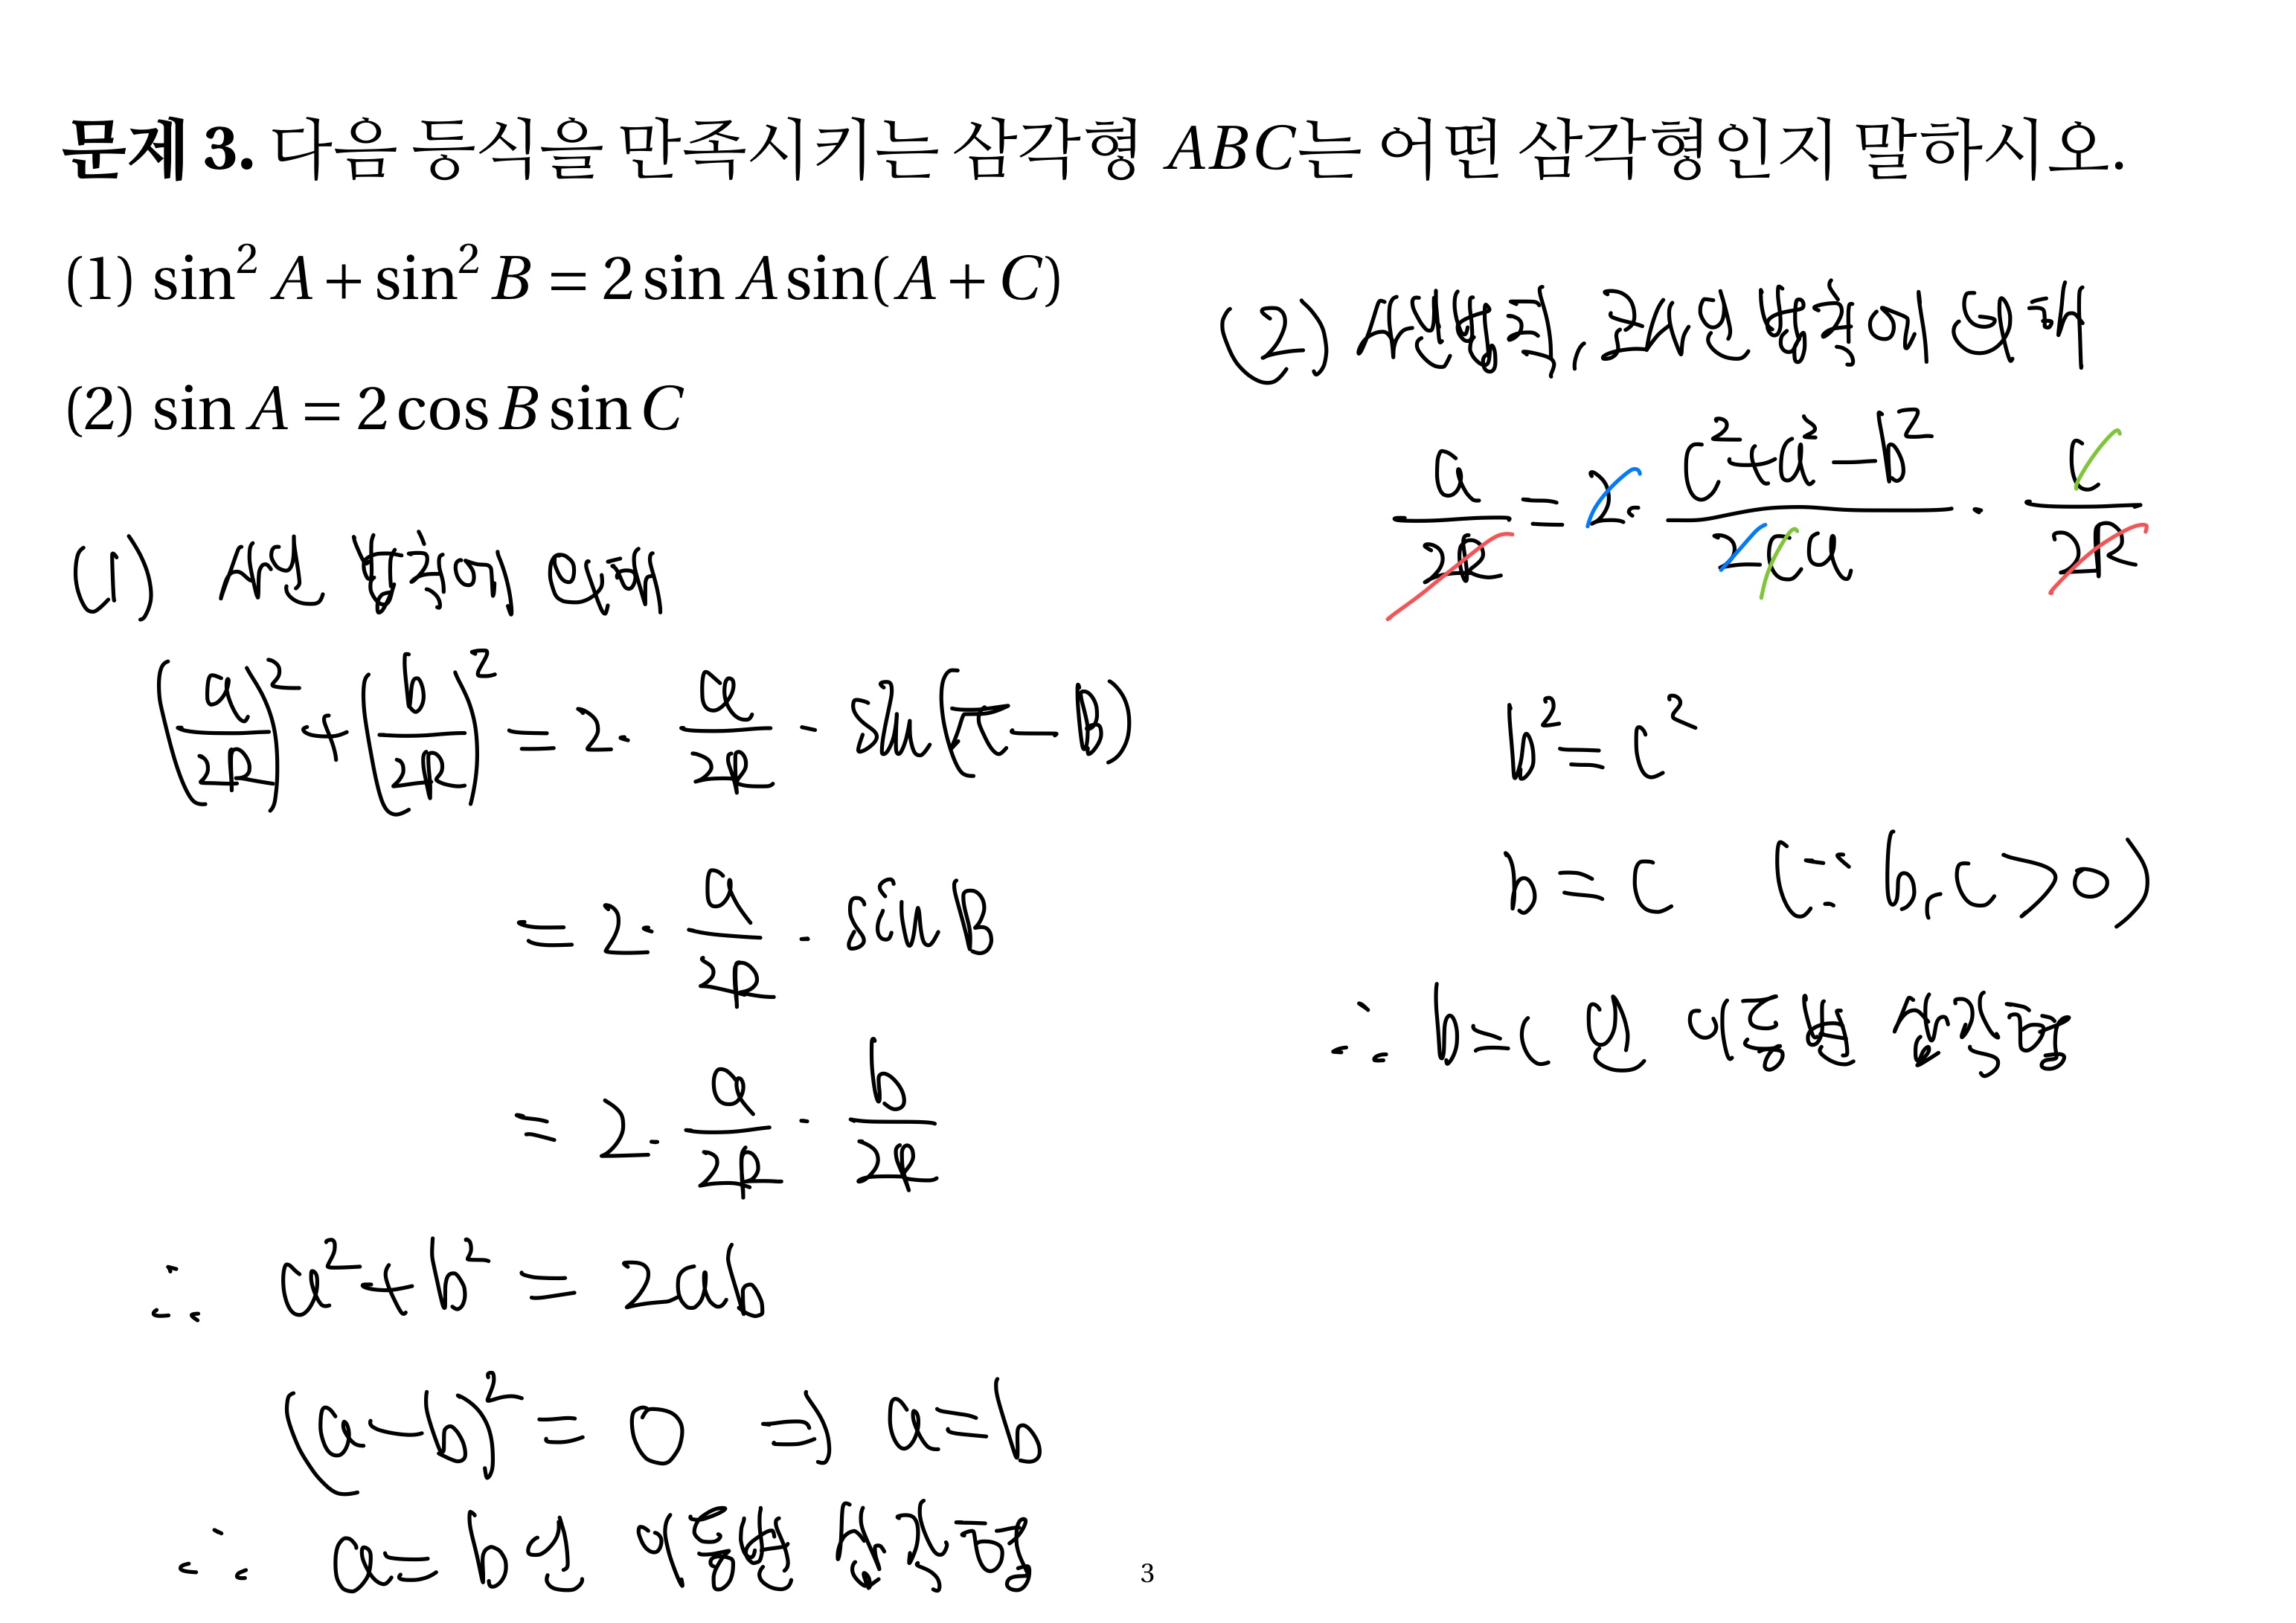 문제 3. 다음 등식을 만족시키는 삼각형 ABC는 어떤 삼각형인지 말하시오.
(1) sin² A + sin² B = 2 sin A sin(A + C)
(2) sin A = 2 cos B sin C
(1) 사인 법칙에 의해
(a/2R)² + (b/2R)² = 2 · a/2R · sin(π − B)
= 2 · a/2R · sin B
= 2 · a/2R · b/2R
∴ a² + b² = 2ab
(a − b)² = 0 ⇒ a = b
∴ a = b인 이등변 삼각형
(2) 사인법칙, 코사인 법칙에 의해
a/2R = 2 · (c² + a² − b²)/2ca · c/2R
b² = c²
b = c (∵ b, c > 0)
∴ b = c 인 이등변 삼각형
3